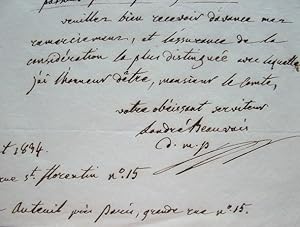 veuillez bien recevoir davance mes
remerciemens, et l'assurance de la
considération la plus distinguée avec laquelle
j'ai l'honneur d'être, monsieur le comte,
votre obéissant serviteur
Landré Beauvais
d. m. p
t 1834.
rue st. florentin n°. 15
auteuil près Paris, grande rue n°. 15.